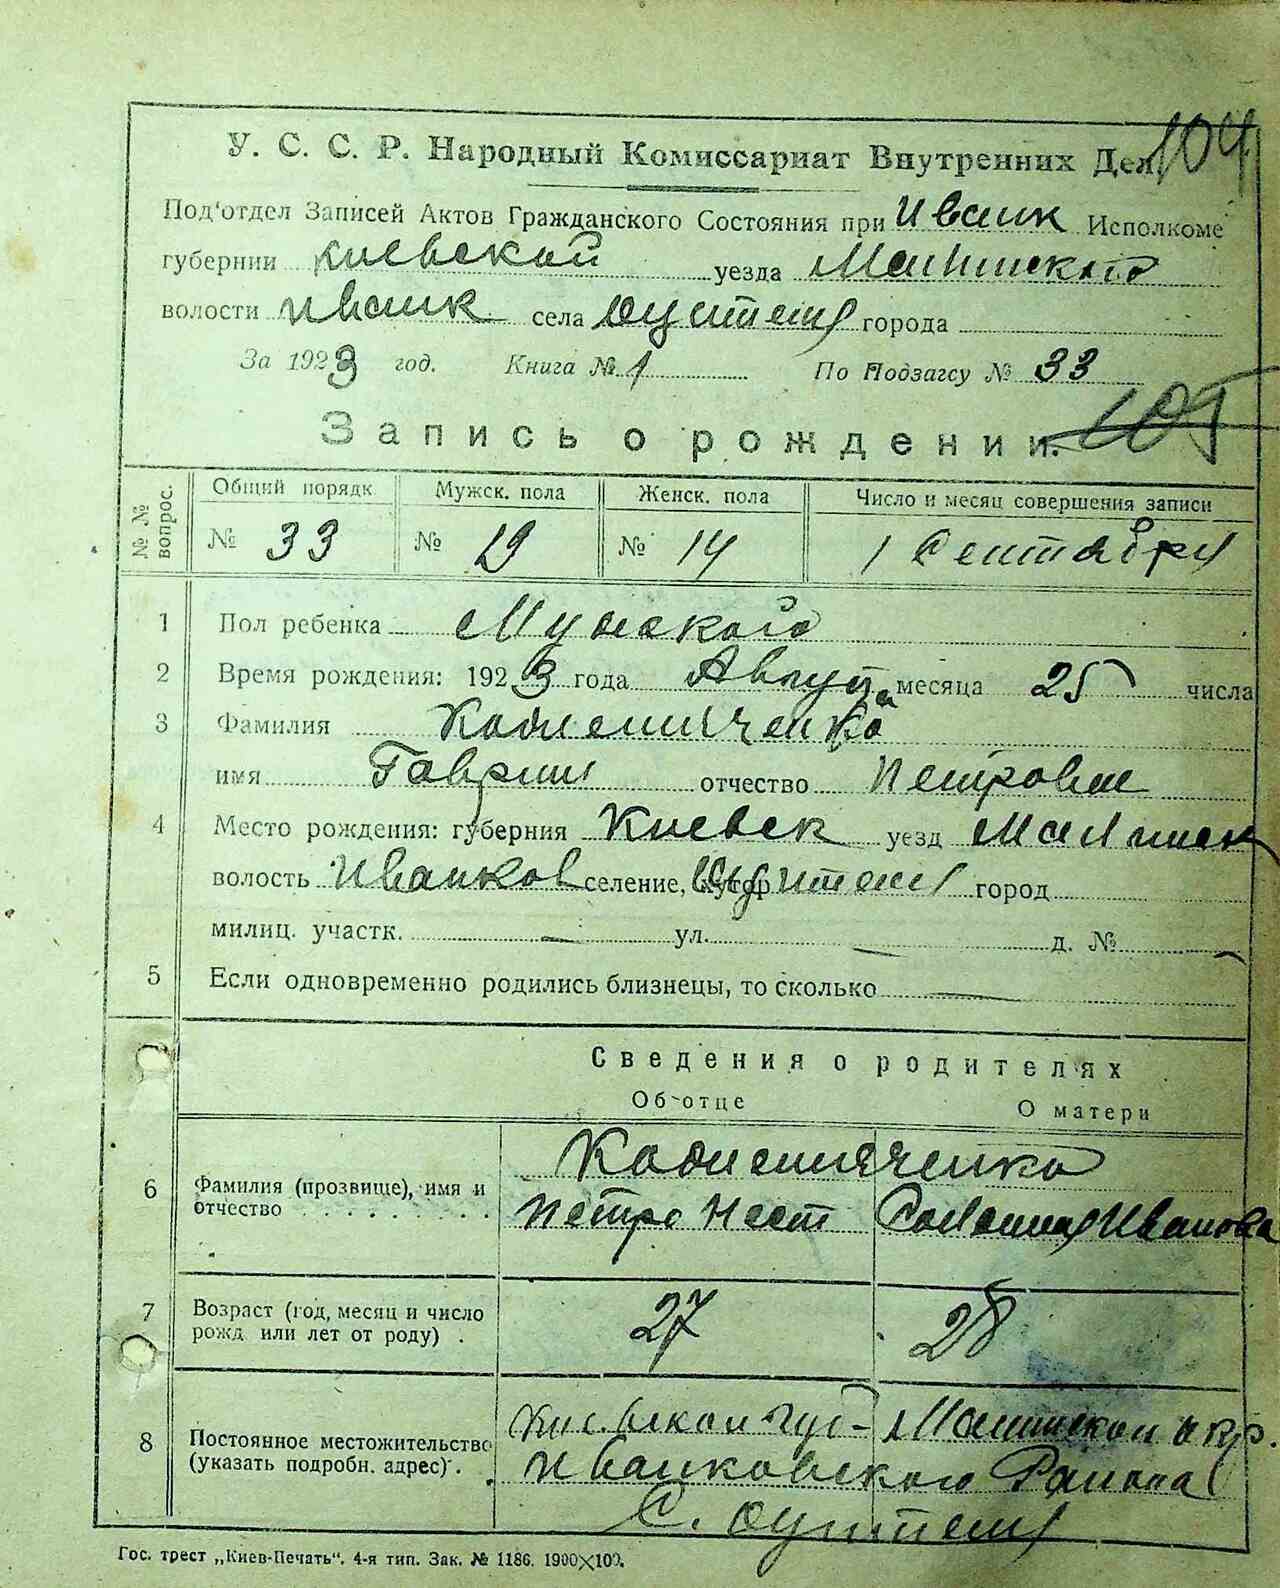 104
У. С. С. Р. Народный Комиссариат Внутренних Дел
Под'отдел Записей Актов Гражданского Состояния при Иванк Исполкоме
губернии Киевской уезда Малинского
волости Иванк села города
За 1923 год. Книга № 1 По Подзагсу № 33
105
Запись о рождении.
№ № вопрос. Общий порядк Мужск. пола Женск. пола Число и месяц совершения записи
№ 33 № 19 № 14 1 Сентября
1 Пол ребенка Мужского
2 Время рождения: 1923 года Августа месяца 25 числа
3 Фамилия
имя Гаврил отчество Петрович
4 Место рождения: губерния Киевск уезд Малинск
волость Иванков селение, хутор город
милиц. участк. — ул. — д. № —
5 Если одновременно родились близнецы, то сколько —
Сведения о родителях
Об отце О матери
6 Фамилия (прозвище), имя и
отчество Петро Нест Иванова
7 Возраст (год, месяц и число
рожд или лет от роду) . 27 28
8 Постоянное местожительство
(указать подробн. адрес) . Киевской губ- Малинской окр.
Иванковского Района
С.
Гос. трест „Киев-Печать“. 4-я тип. Зак. № 1186. 1900×100.